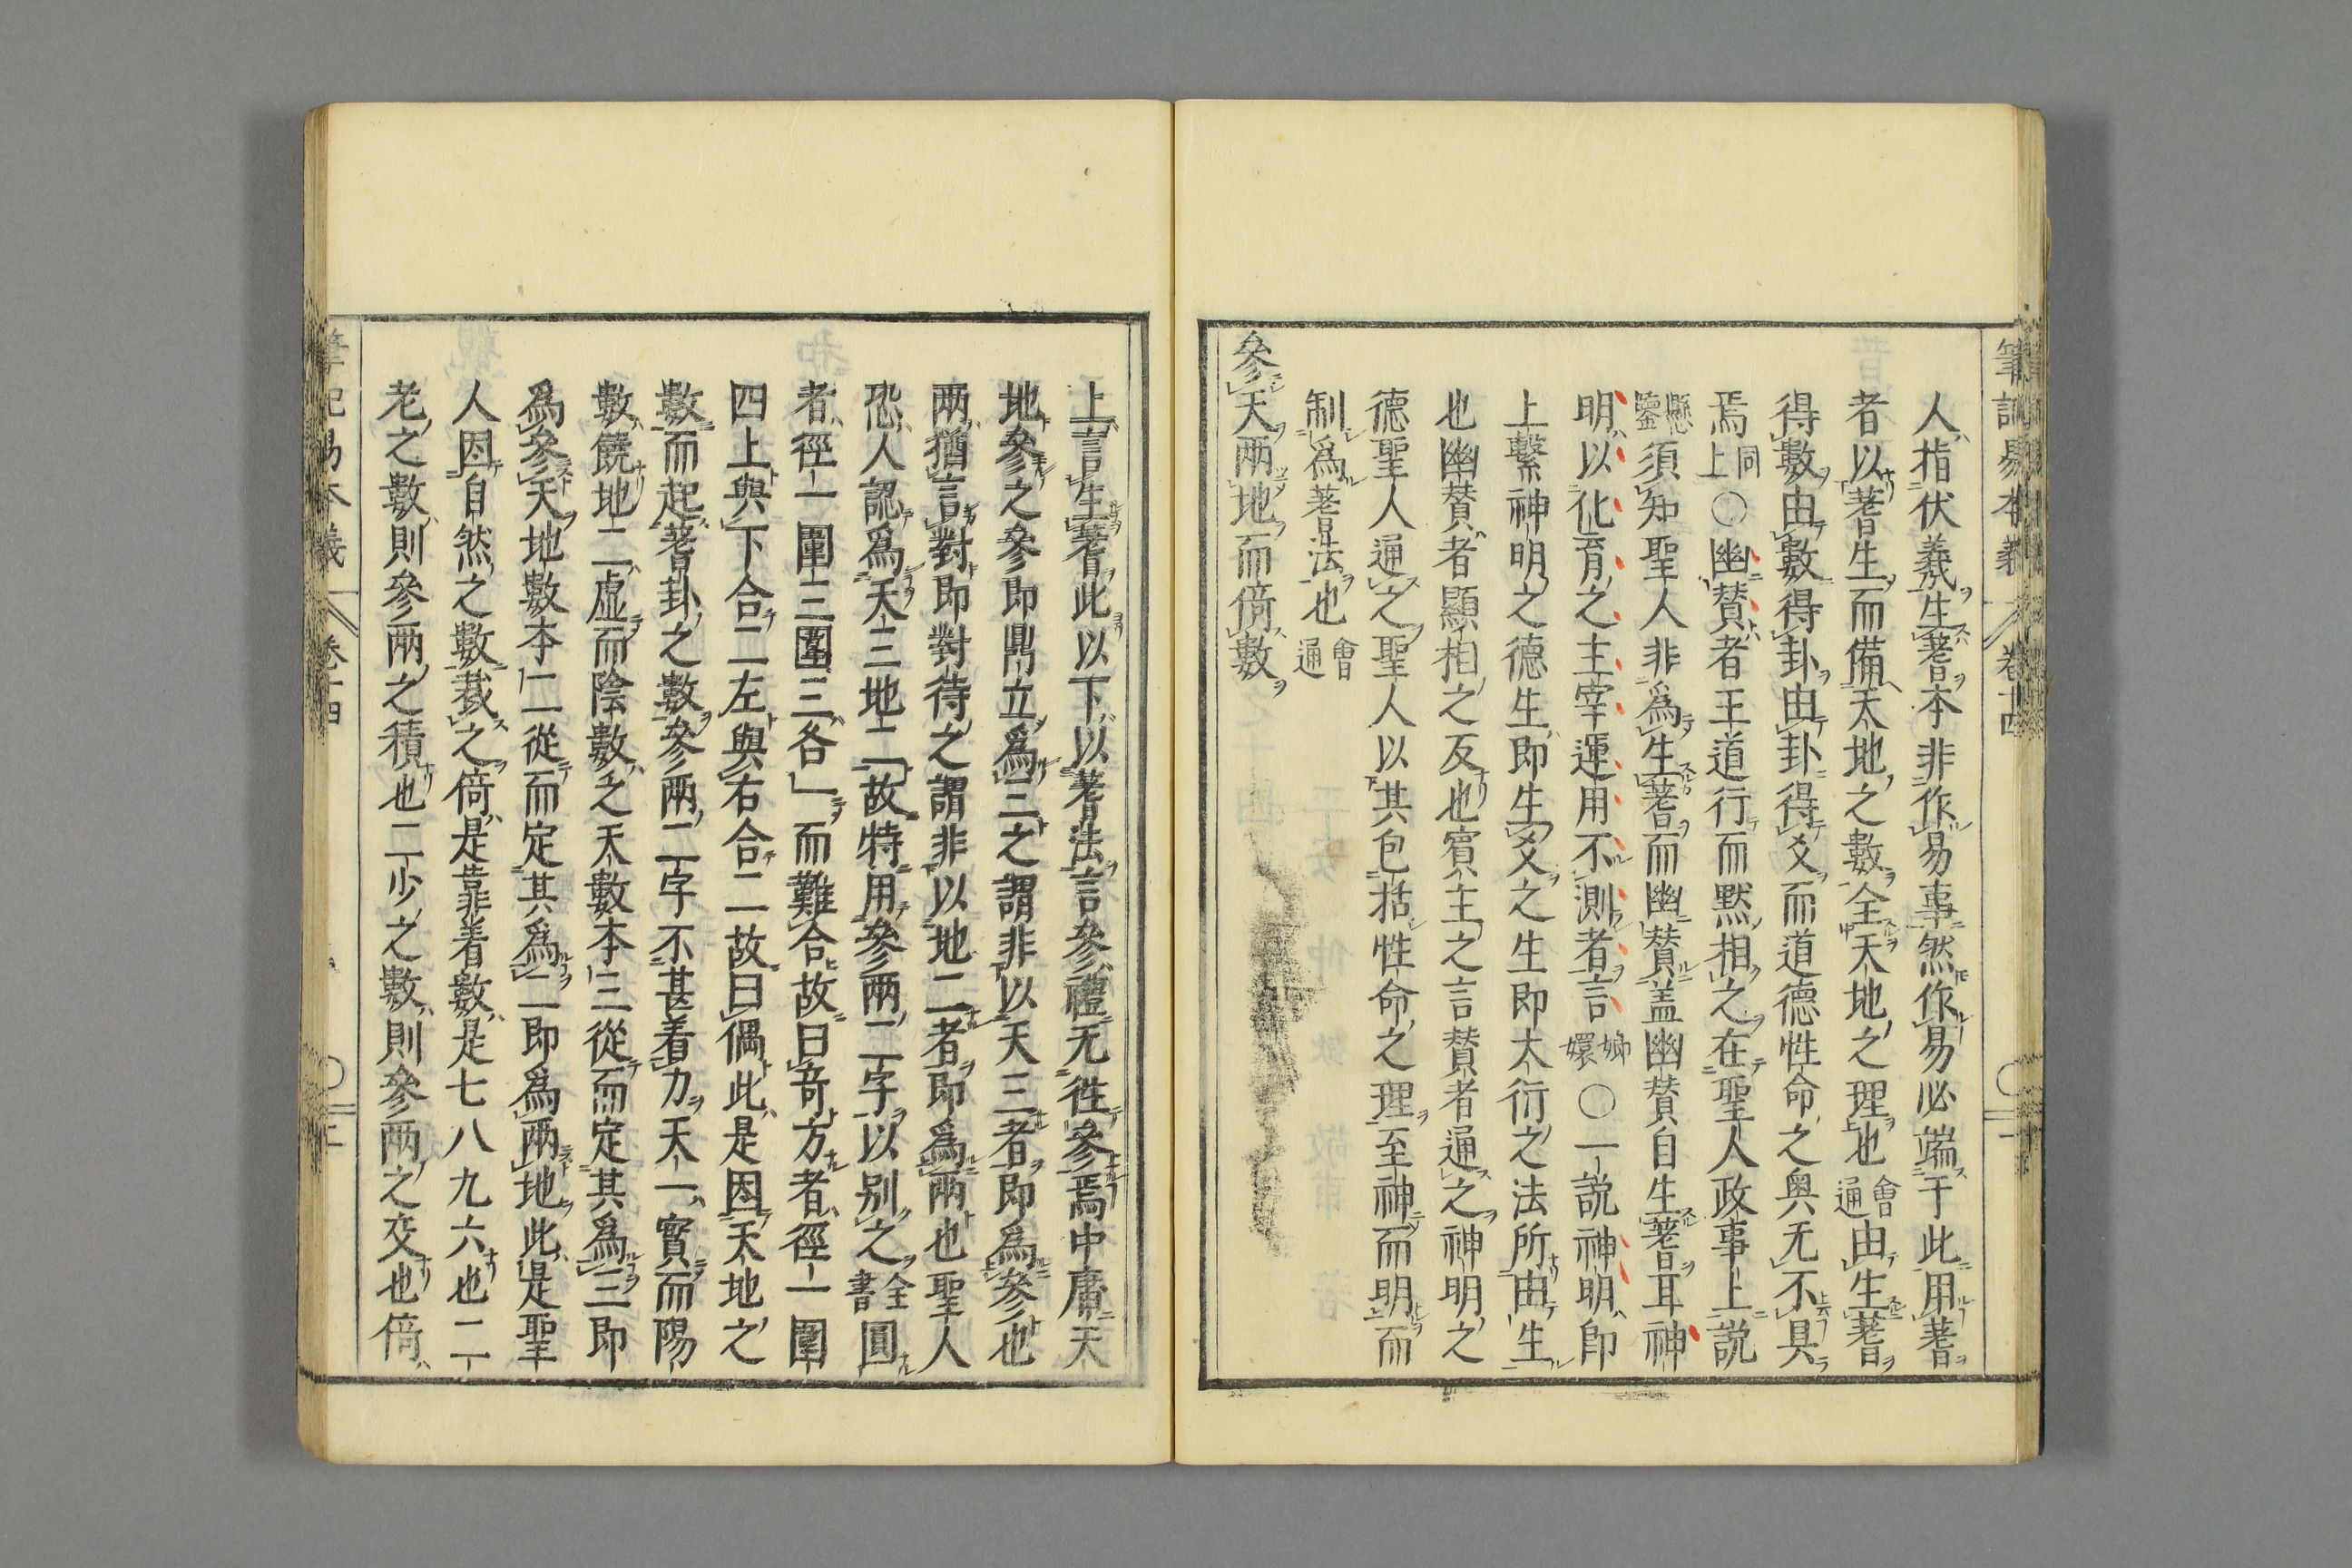 人指伏羲生蓍本非作易事然作易必端于此用蓍
者以蓍生而備天地之數全天地之理也會通由生蓍
得數由數得卦由卦得爻而道德性命之奥无不具
焉同上〇幽贊者王道行而默相之在聖人政事上說
懸鑒須知聖人非爲生蓍而幽贊盖幽贊自生蓍耳神
明以化育之主宰運用不測者言嫏嬛〇一說神明即
上繫神明之德生即生爻之生即大衍之法所由生
也幽贊者顯相之反也賓主之言贊者通之神明之
德聖人通之聖人以其包括性命之理至神而明而
制爲蓍法也會通
參天兩地而倚數
上言生蓍此以下以蓍法言參禮无徃參焉中庸天
地參之參即鼎立爲三之謂非以天三者即爲參也
兩猶言對即對待之謂非以地二者即爲兩也聖人
恐人認爲天三地二故特用參兩二字以別之全書圓
者徑一圍三圍三各一而難合故曰奇方者徑一圍
四上與下合二左與右合二故曰偶此是因天地之
數而起蓍卦之數參兩二字不甚着力天一實而陽
數饒地二虛而陰數乏天數本三從而定其爲三即
爲參天地數本二從而定其爲二即爲兩地此是聖
人因自然之數裁之倚是靠着數是七八九六也二
老之數則參兩之積也二少之數則參兩之交也倚